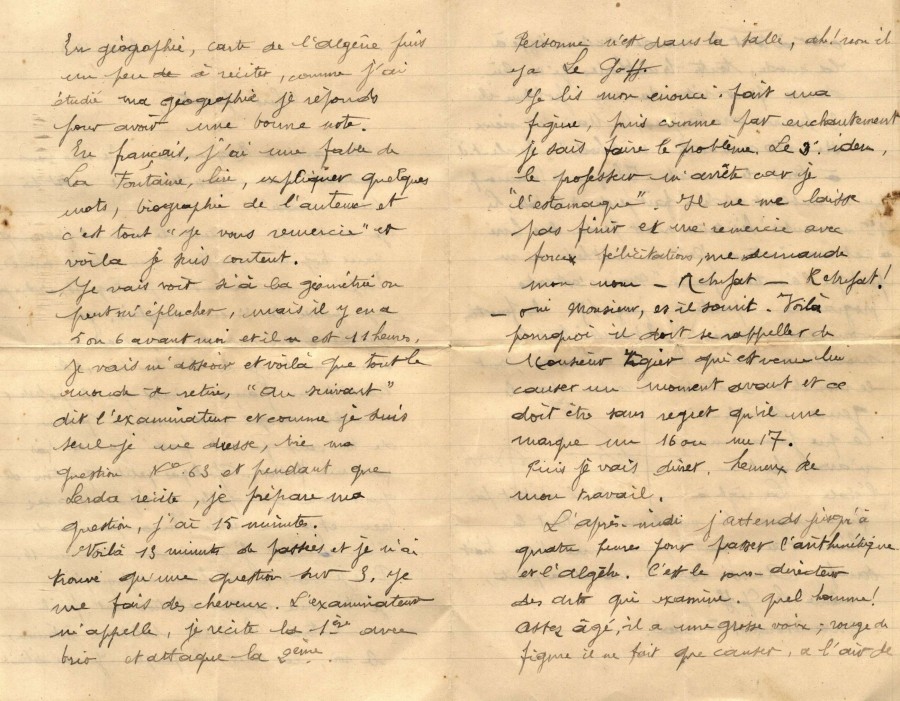 En géographie, carte de l'algérie puis
un peu de à réciter, comme j'ai
étudié ma géographie je réponds
pour avoir une bonne note.
En français, j'ai une fable de
La Fontaine, lire, expliquer quelques
mots, biographie de l'auteur et
c'est tout "je vous remercie" et
voilà je suis content.
Je vais voir si à la géométrie on
peut m'éplucher, mais il y en a
5 ou 6 avant moi et il n est 11 heures,
je vais m'asseoir et voilà que tout le
monde se retire, "au suivant"
dit l'examinateur et comme je suis
seul je me dresse, tire ma
question No 63 et pendant que
Lerda récite, je prépare ma
question, j'ai 15 minutes.
Voilà 13 minutes de passées et je n'ai
trouvé qu'une question sur 3, je
me fais des cheveux. L'examinateur
m'appelle, je récite la 1ère avec
brio et attaque la 2ème.
Personne n'est dans la salle, ah! non il
y a Le Goff.
Je lis mon énoncé. fait ma
figure, puis comme par enchantement
je sais faire le problème. Le 3e idem,
le professeur m'arrête car je
"l'estomaque". Il ne me laisse
pas finir et me remercie avec
forces félicitations, me demande
mon nom – –
– oui Monsieur, et il sourit. Voilà
pourquoi il doit se rappeller de
Monsieur qui est venu lui
causer un moment avant et ce
doit être sans regret qu'il me
marque un 16 ou un 17.
Puis je vais dîner, heureux de
mon travail.
L'après-midi j'attends jusqu'à
quatre heures pour passer l'arithmétique
et l'algèbre. C'est le sous-directeur
des arts qui examine. quel homme!
assez âgé, il a une grosse voix ; rouge de
figure il ne fait que causer, a l'air de